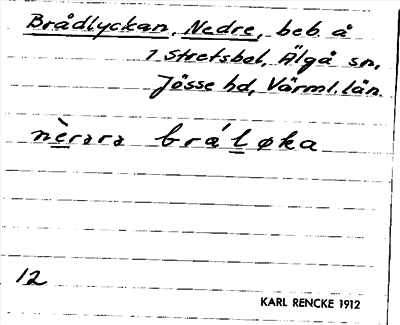 Brådlyckan, Nedre, beb. å
1 Stretsbol, Älgå sn,
Jösse hd, Värml. län.
nèrərə brá̊løka
12
KARL RENCKE 1912